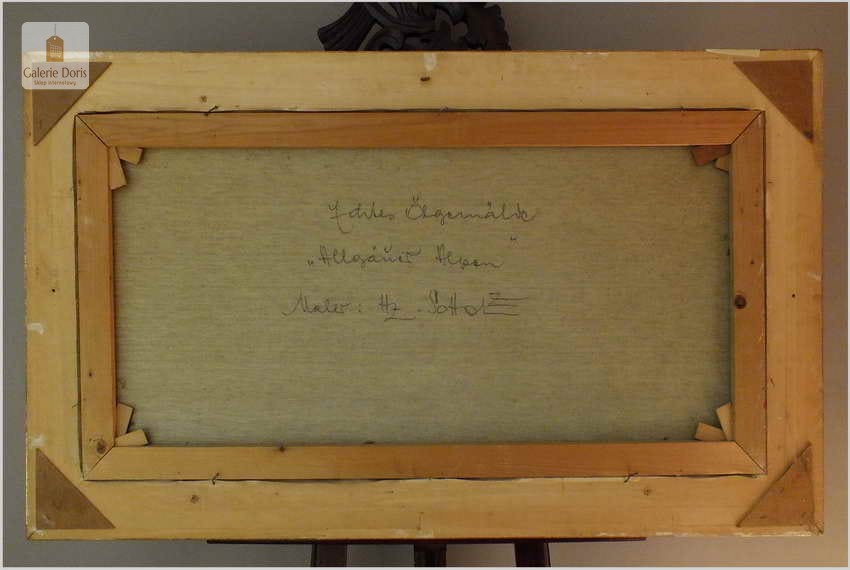 Galerie Doris
Echtes Ölgemälde
„Allgäuer Alpen"
Maler: Hz.